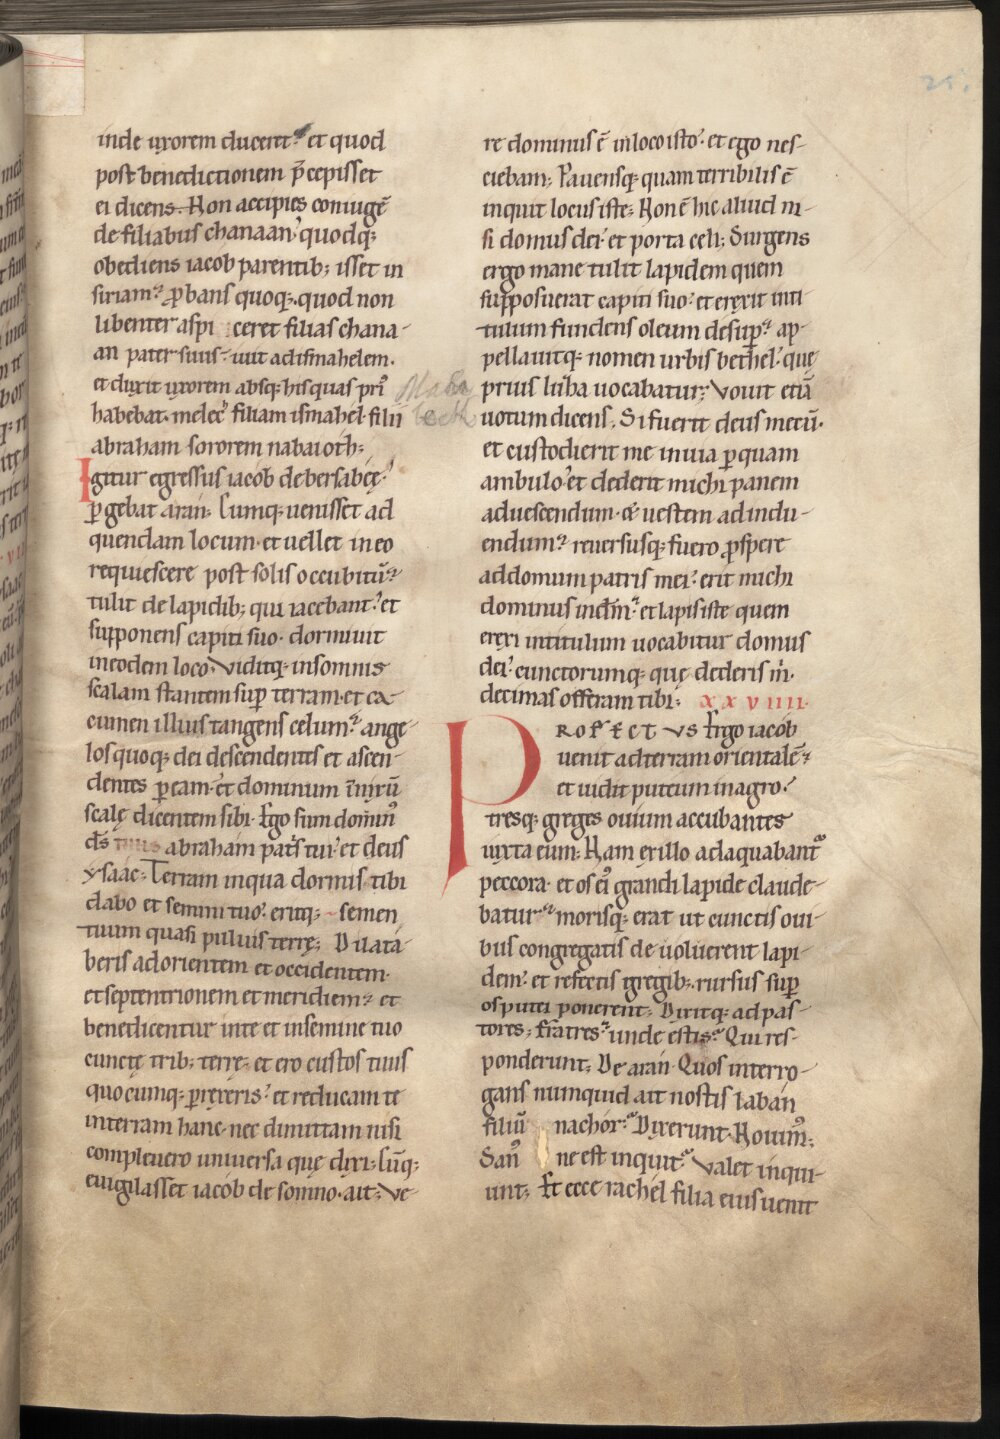 inde uxorem duceret. et quod
post benedictionem p̄cepisset
ei dicens. Non accipies coniugē
de filiabus chanaan. quodq;
obediens iacob parentib; isset in
siriam. ꝓbans quoq; quod non
libenter aspi ceret filias chana-
an pater suus. iuit ad ismahelem.
et duxit uxorem absq; his quas pri̅
habebat. melec̅ filiam ismahel filii
abraham sororem nabaioth;
Igitur egressus iacob de bersabęę.
ꝑgebat aran. Cumq; uenisset ad
quendam locum. et uellet in eo
requiescere post solis occubitū.
tulit de lapidib; qui iacebant. et
supponens capiti suo. dormiuit
in eodem loco. Viditq; in somnis
scalam stantem suꝑ terram. et ca-
cumen illius tangens celum. ange-
los quoq; dei descendentes et ascen-
dentes ꝑ eam. et dominum īnixū
scalę dicentem sibi. Ego sum domin᷒
d̄s abraham pat̄s tui. et deus
ysaac. Terram in qua dormis tibi
dabo et semini tuo. eritq; semen
tuum quasi puluis terrę; Dilata-
beris ad orientem et occidentem.
et septentrionem et meridiem. et
benedicentur in te et in semine tuo
cunctę trib; terrę. et ero custos tuus
quocumq; ꝑrexeris. et reducam te
in terram hanc. nec dimittam nisi
compleuero uniuersa que dixi. Cūq;
euigilasset iacob de somno. ait; Ve-
re dominus ē in loco isto. et ego nes-
ciebam; Pauensq; quam terribilis ē
inquit locus iste; Non ē hic aliud ni-
si domus dei et porta celi; Surgens
ergo mane tulit lapidem quem
supposuerat capiti suo. et erexit inti-
tulum fundens oleum desuꝑ. ap-
pellauitq; nomen urbis bethel. quę
prius luha uocabatur; Vouit etiā
uotum dicens. Si fuerit deus mecū.
et custodierit me in uia ꝑ quam
ambulo. et dederit michi panem
ad uescendum. & uestem ad indu-
endum. reuersusq; fuero ꝓspere
ad domum patris mei. erit michi
dominus in dm̄. et lapis iste quem
erexi in titulum uocabitur domus
dei. cunctorumq; quę dederis m̄.
decimas offeram tibi; xxviiii.
PROFECTVS Ergo iacob
uenit ad terram orientalē.
et uidit puteum in agro.
tresq; greges ouium accubantes
iuxta eum. Nam ex illo adaquabant᷒
peccora. et os ei᷒ grandi lapide claude-
batur. morisq; erat ut cunctis oui-
bus congregatis deuoluerent lapi-
dem. et refectis gregib;. rursus suꝑ
os putei ponerent; Dixitq; ad pas-
tores; fratres. unde estis. Qui res-
ponderunt; De aran. Quos interro-
gans numquid ait nostis laban
filiū nachor. Dixerunt. Nouim᷒;
San᷒ ne est inquit. Valet inqui-
unt; Et ecce rachel filia eius uenit